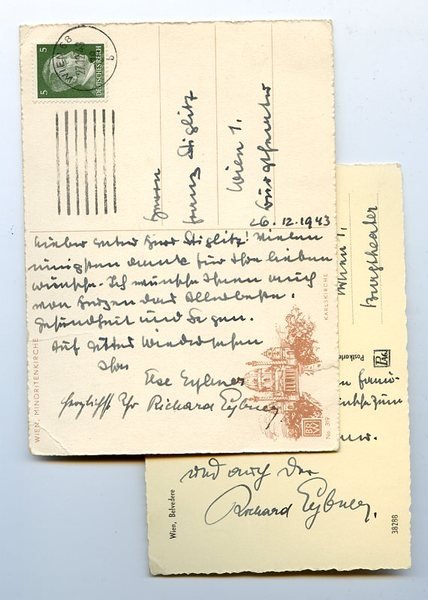 5
5
DEUTSCHES REICH
WIEN 68
b
Herrn
Franz Diglitz
Wien 1.
Burgtheater
26.12.1943
Lieber guter Herr Diglitz! Vielen
innigsten Dank für Ihre lieben
Wünsche. Ich wünsche Ihnen auch
von Herzen das Allerbeste.
Gesundheit und Segen.
Auf Wiedersehen
Ihre
Else Eybner
herzlichst Ihr Richard Eybner
WIEN, MINORITENKIRCHE
KARLSKIRCHE
Nr. 319
Wien 1.
Burgtheater
Postkarte
zum
und auch der
Richard Eybner.
Wien, Belvedere
38288